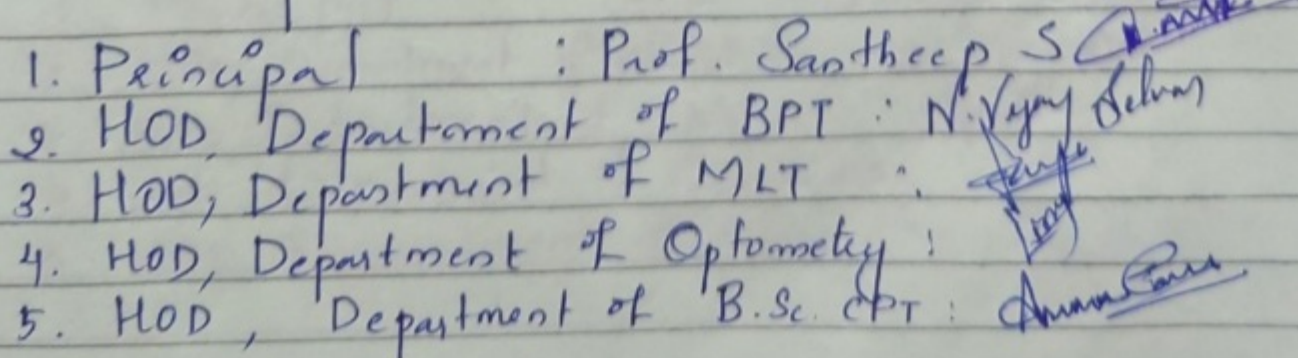 1. Principal : Prof. Santheep S
2. HOD, Departoment of BPT : N. Vijay Selvan
3. HOD, Department of MLT :
4. HOD, Department of Optometry :
5. HOD, Department of B.Sc. CPT :